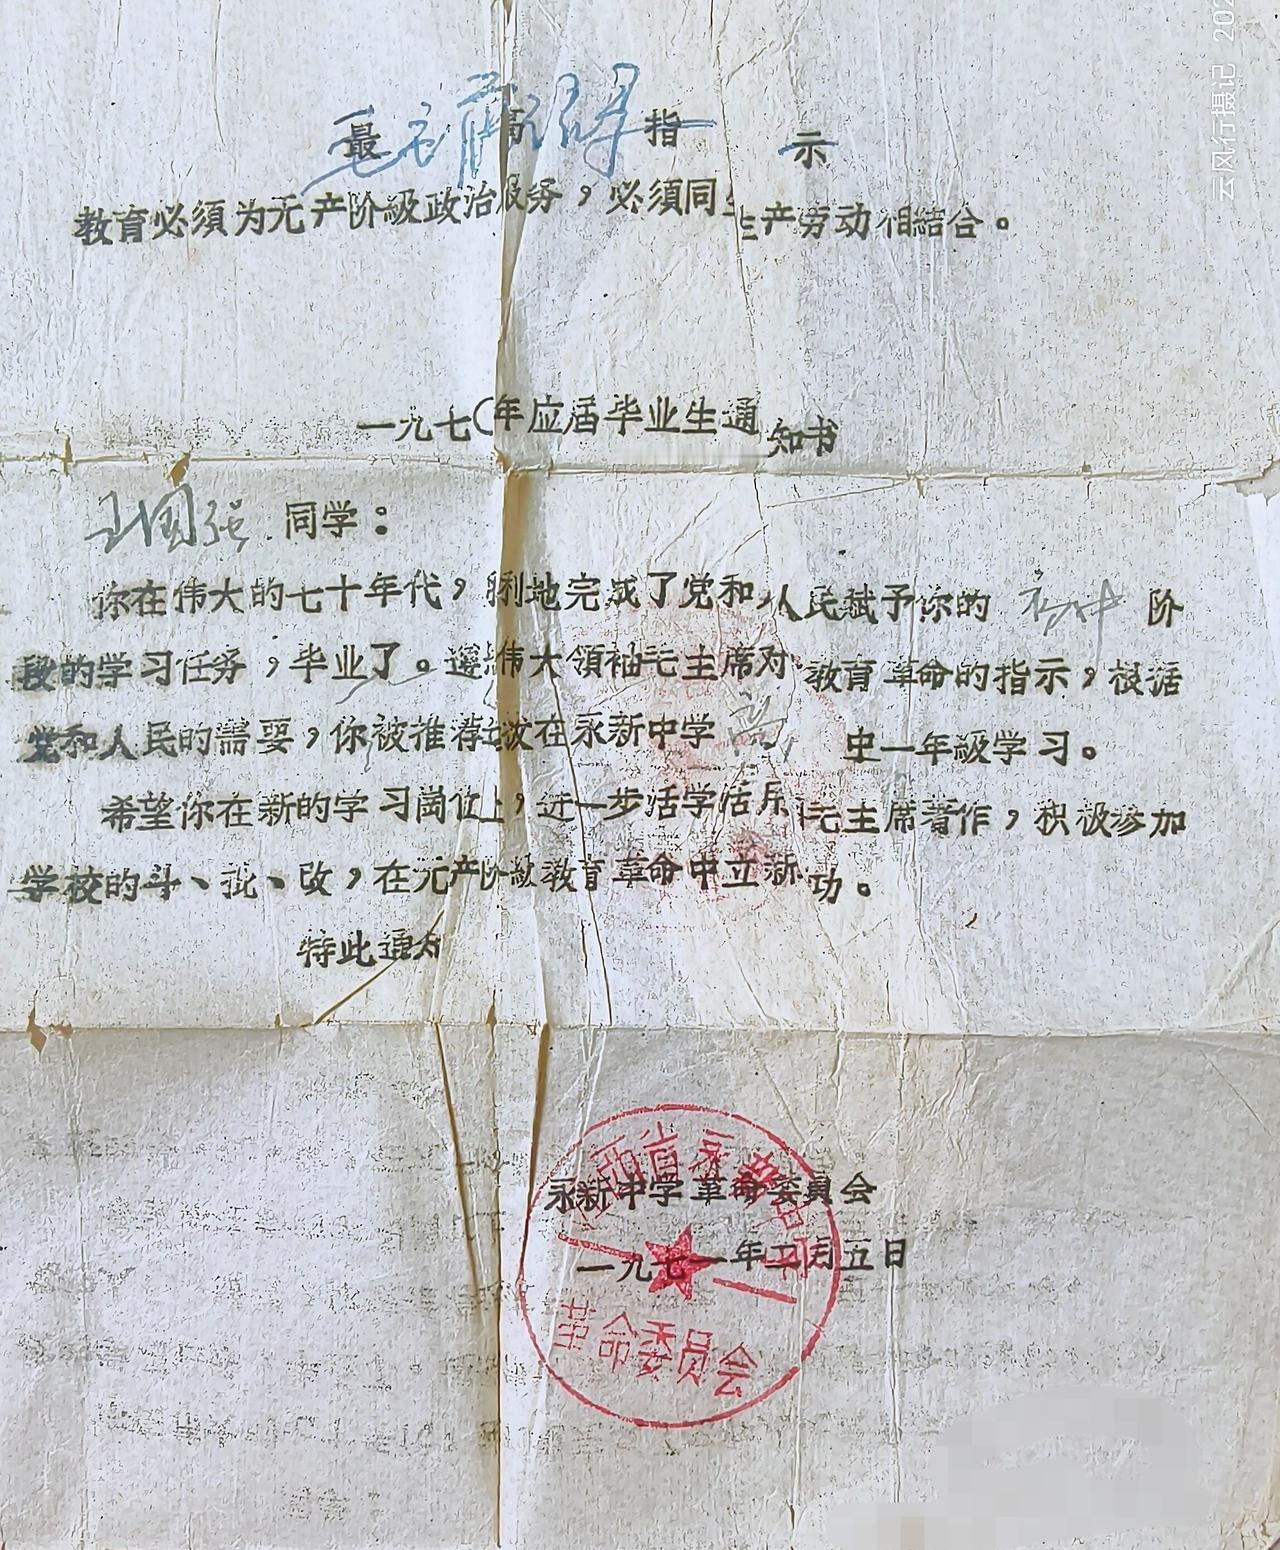 最高指示
毛主席语录
教育必須为无产阶級政治服务，必須同生产劳动相結合。
一九七〇年应届毕业生通知书
王国强 同学：
你在伟大的七十年代，胜利地完成了党和人民赋予你的 初中 阶
段的学习任务，毕业了。遵照伟大領袖毛主席对教育革命的指示，根据
党和人民的需要，你被推荐选拔在永新中学 高 中一年級学习。
希望你在新的学习崗位上，进一步活学活用毛主席著作，积极参加
学校的斗、批、改，在无产阶級教育革命中立新功。
特此通知
永新中学革命委員会
一九七一年二月五日
西省永新中学
革命委员会
云风行摄记 202